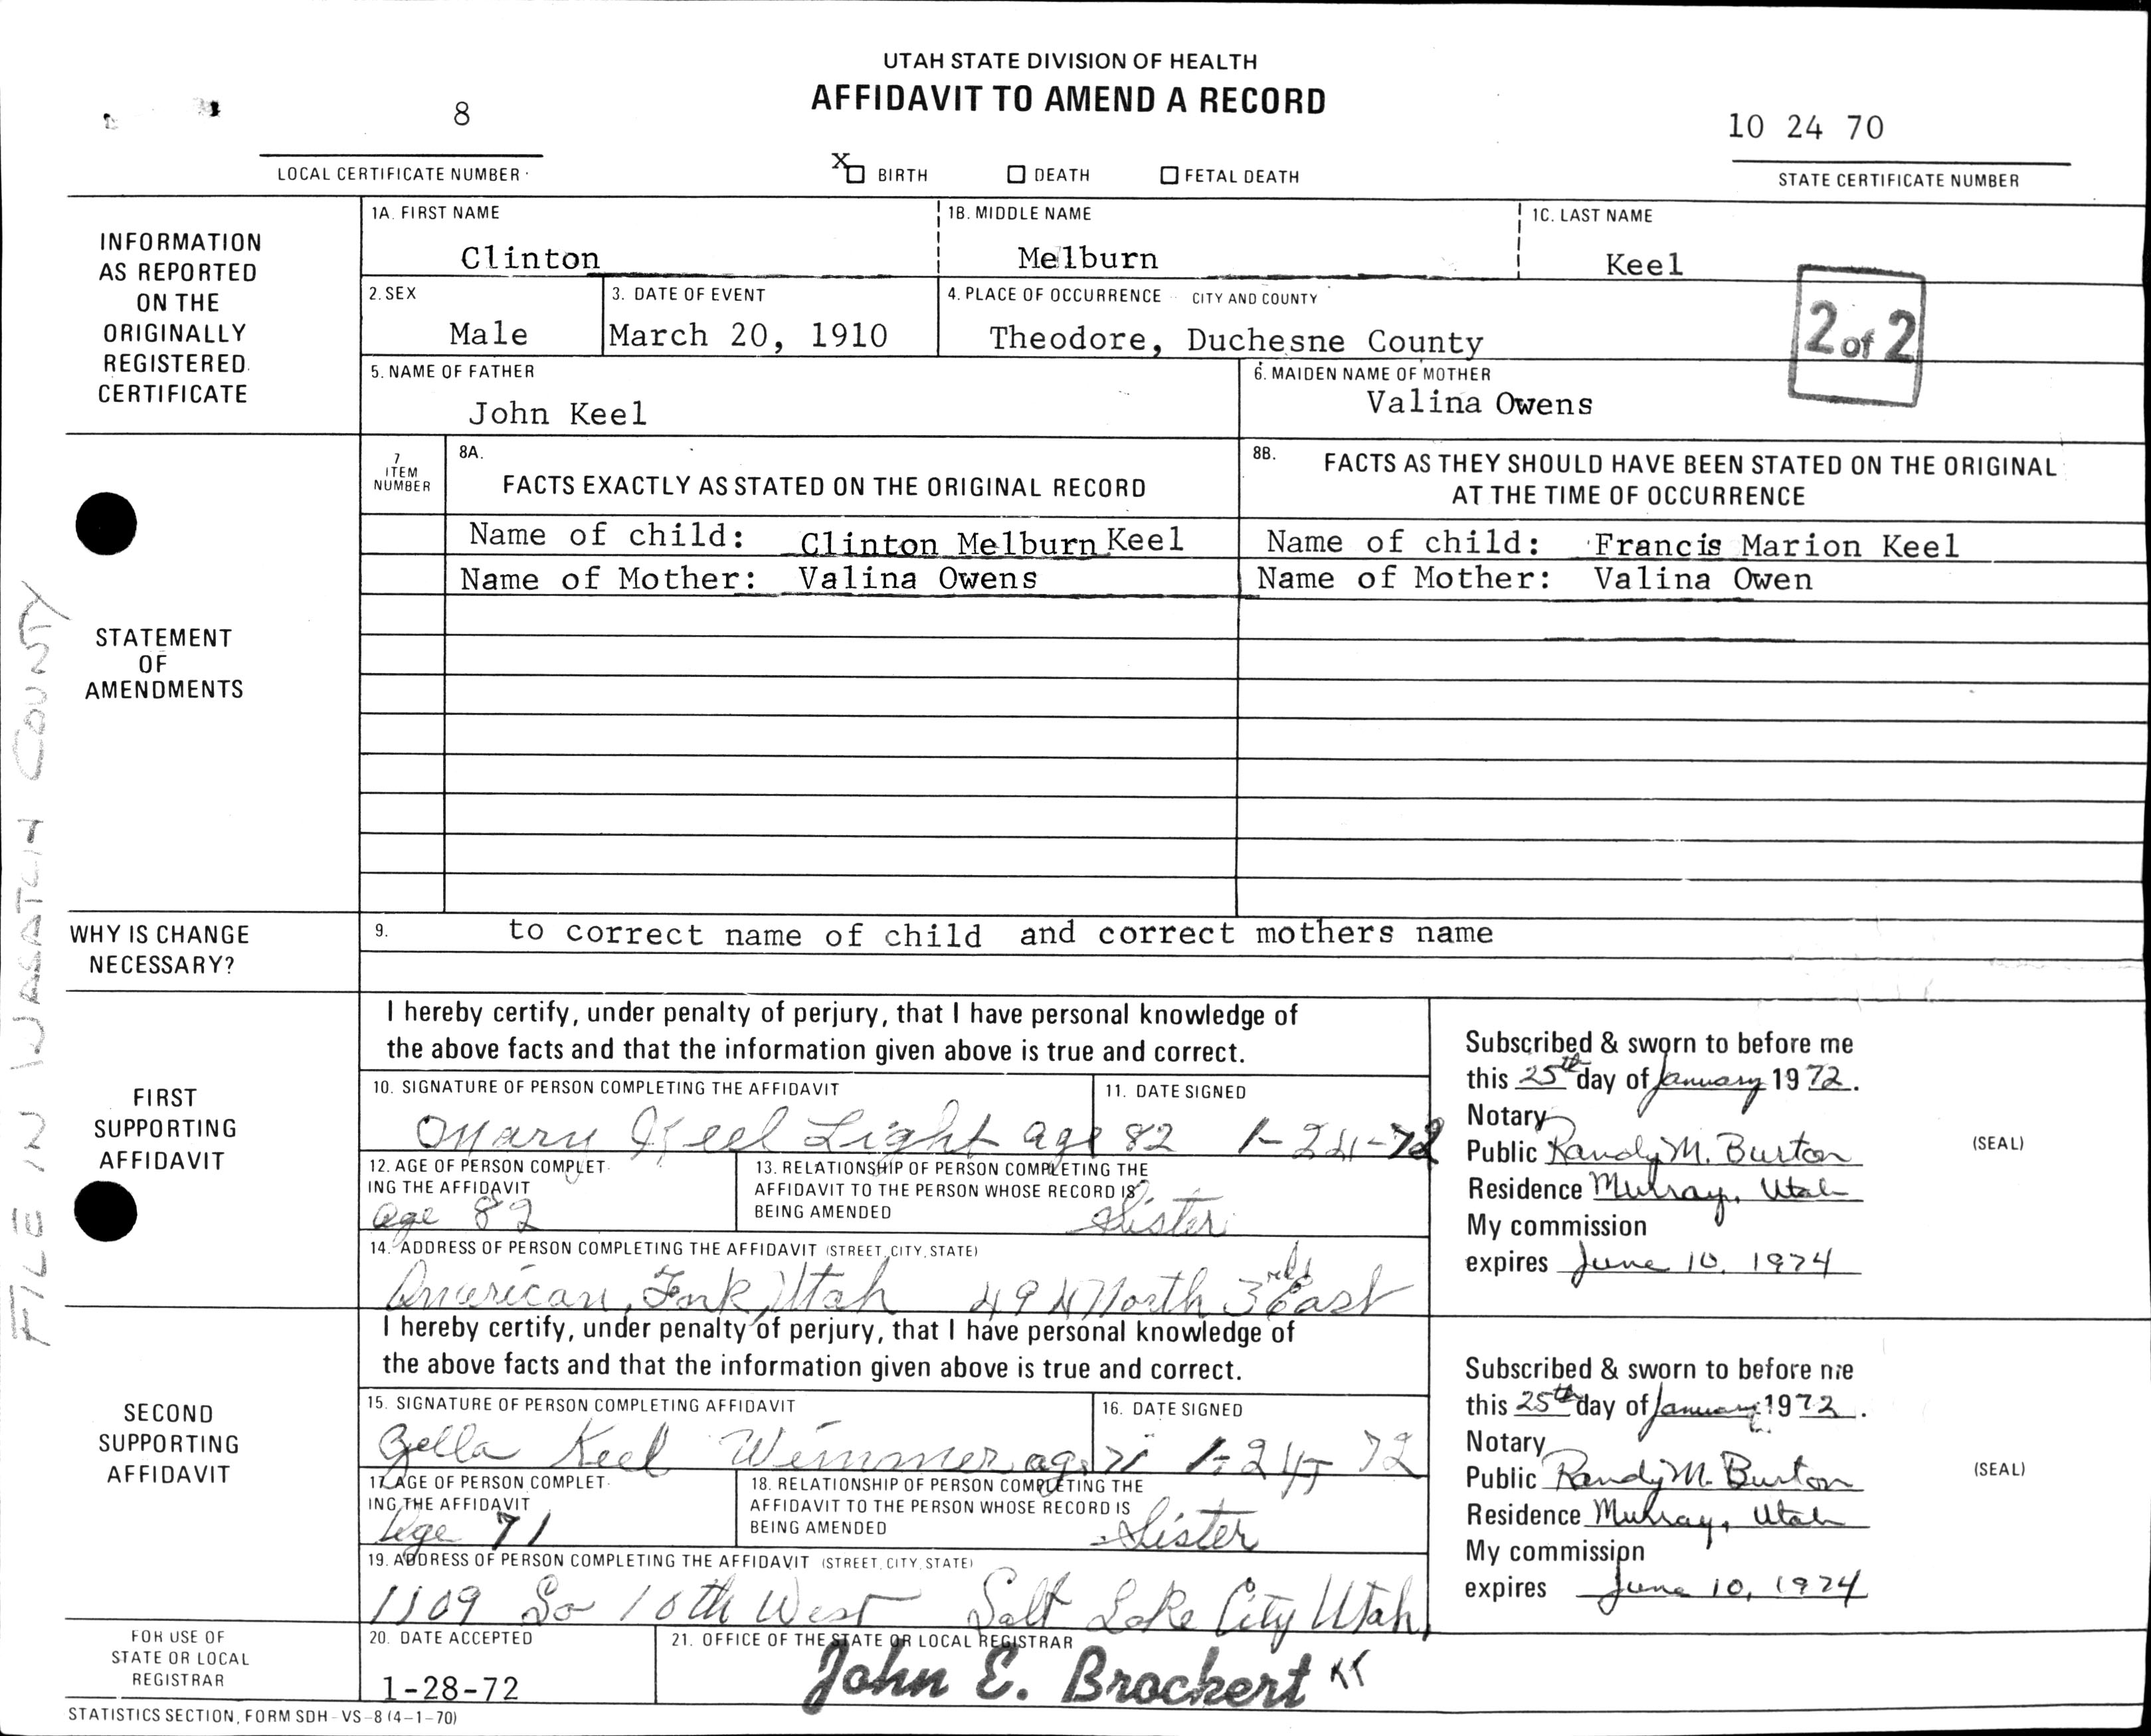 UTAH STATE DIVISION OF HEALTH
AFFIDAVIT TO AMEND A RECORD
8
10 24 70
LOCAL CERTIFICATE NUMBER
X BIRTH DEATH FETAL DEATH
STATE CERTIFICATE NUMBER
INFORMATION AS REPORTED ON THE ORIGINALLY REGISTERED CERTIFICATE
1A. FIRST NAME
Clinton
1B. MIDDLE NAME
Melburn
1C. LAST NAME
Keel
2. SEX
Male
3. DATE OF EVENT
March 20, 1910
4. PLACE OF OCCURRENCE CITY AND COUNTY
Theodore, Duchesne County
2 of 2
5. NAME OF FATHER
John Keel
6. MAIDEN NAME OF MOTHER
Valina Owens
STATEMENT OF AMENDMENTS
7 ITEM NUMBER
8A.
FACTS EXACTLY AS STATED ON THE ORIGINAL RECORD
8B. FACTS AS THEY SHOULD HAVE BEEN STATED ON THE ORIGINAL
AT THE TIME OF OCCURRENCE
Name of child: Clinton Melburn Keel
Name of child: Francis Marion Keel
Name of Mother: Valina Owens
Name of Mother: Valina Owen
FILE IN WASATCH COUNTY
WHY IS CHANGE NECESSARY?
9. to correct name of child and correct mothers name
FIRST SUPPORTING AFFIDAVIT
I hereby certify, under penalty of perjury, that I have personal knowledge of
the above facts and that the information given above is true and correct.
10. SIGNATURE OF PERSON COMPLETING THE AFFIDAVIT
11. DATE SIGNED
Mary Keel Light age 82 1-24-72
12. AGE OF PERSON COMPLET-
ING THE AFFIDAVIT
age 82
13. RELATIONSHIP OF PERSON COMPLETING THE
AFFIDAVIT TO THE PERSON WHOSE RECORD IS
BEING AMENDED
Sister
14. ADDRESS OF PERSON COMPLETING THE AFFIDAVIT (STREET, CITY, STATE)
American, Fork, Utah 494 North 3rd East
Subscribed & sworn to before me
this 25th day of January 1972.
Notary
Public Randy M. Burton
Residence Murray, Utah
My commission
expires June 10, 1974
(SEAL)
SECOND SUPPORTING AFFIDAVIT
I hereby certify, under penalty of perjury, that I have personal knowledge of
the above facts and that the information given above is true and correct.
15. SIGNATURE OF PERSON COMPLETING AFFIDAVIT
16. DATE SIGNED
Zella Keel Wimmer age 71 1-24-72
17. AGE OF PERSON COMPLET-
ING THE AFFIDAVIT
Age 71
18. RELATIONSHIP OF PERSON COMPLETING THE
AFFIDAVIT TO THE PERSON WHOSE RECORD IS
BEING AMENDED
Sister
19. ADDRESS OF PERSON COMPLETING THE AFFIDAVIT (STREET, CITY, STATE)
1109 So 10th West Salt Lake City Utah
Subscribed & sworn to before me
this 25th day of January 1972.
Notary
Public Randy M. Burton
Residence Murray, Utah
My commission
expires June 10, 1974
(SEAL)
FOR USE OF STATE OR LOCAL REGISTRAR
20. DATE ACCEPTED
1-28-72
21. OFFICE OF THE STATE OR LOCAL REGISTRAR
John E. Brockert
STATISTICS SECTION, FORM SDH-VS-8 (4-1-70)